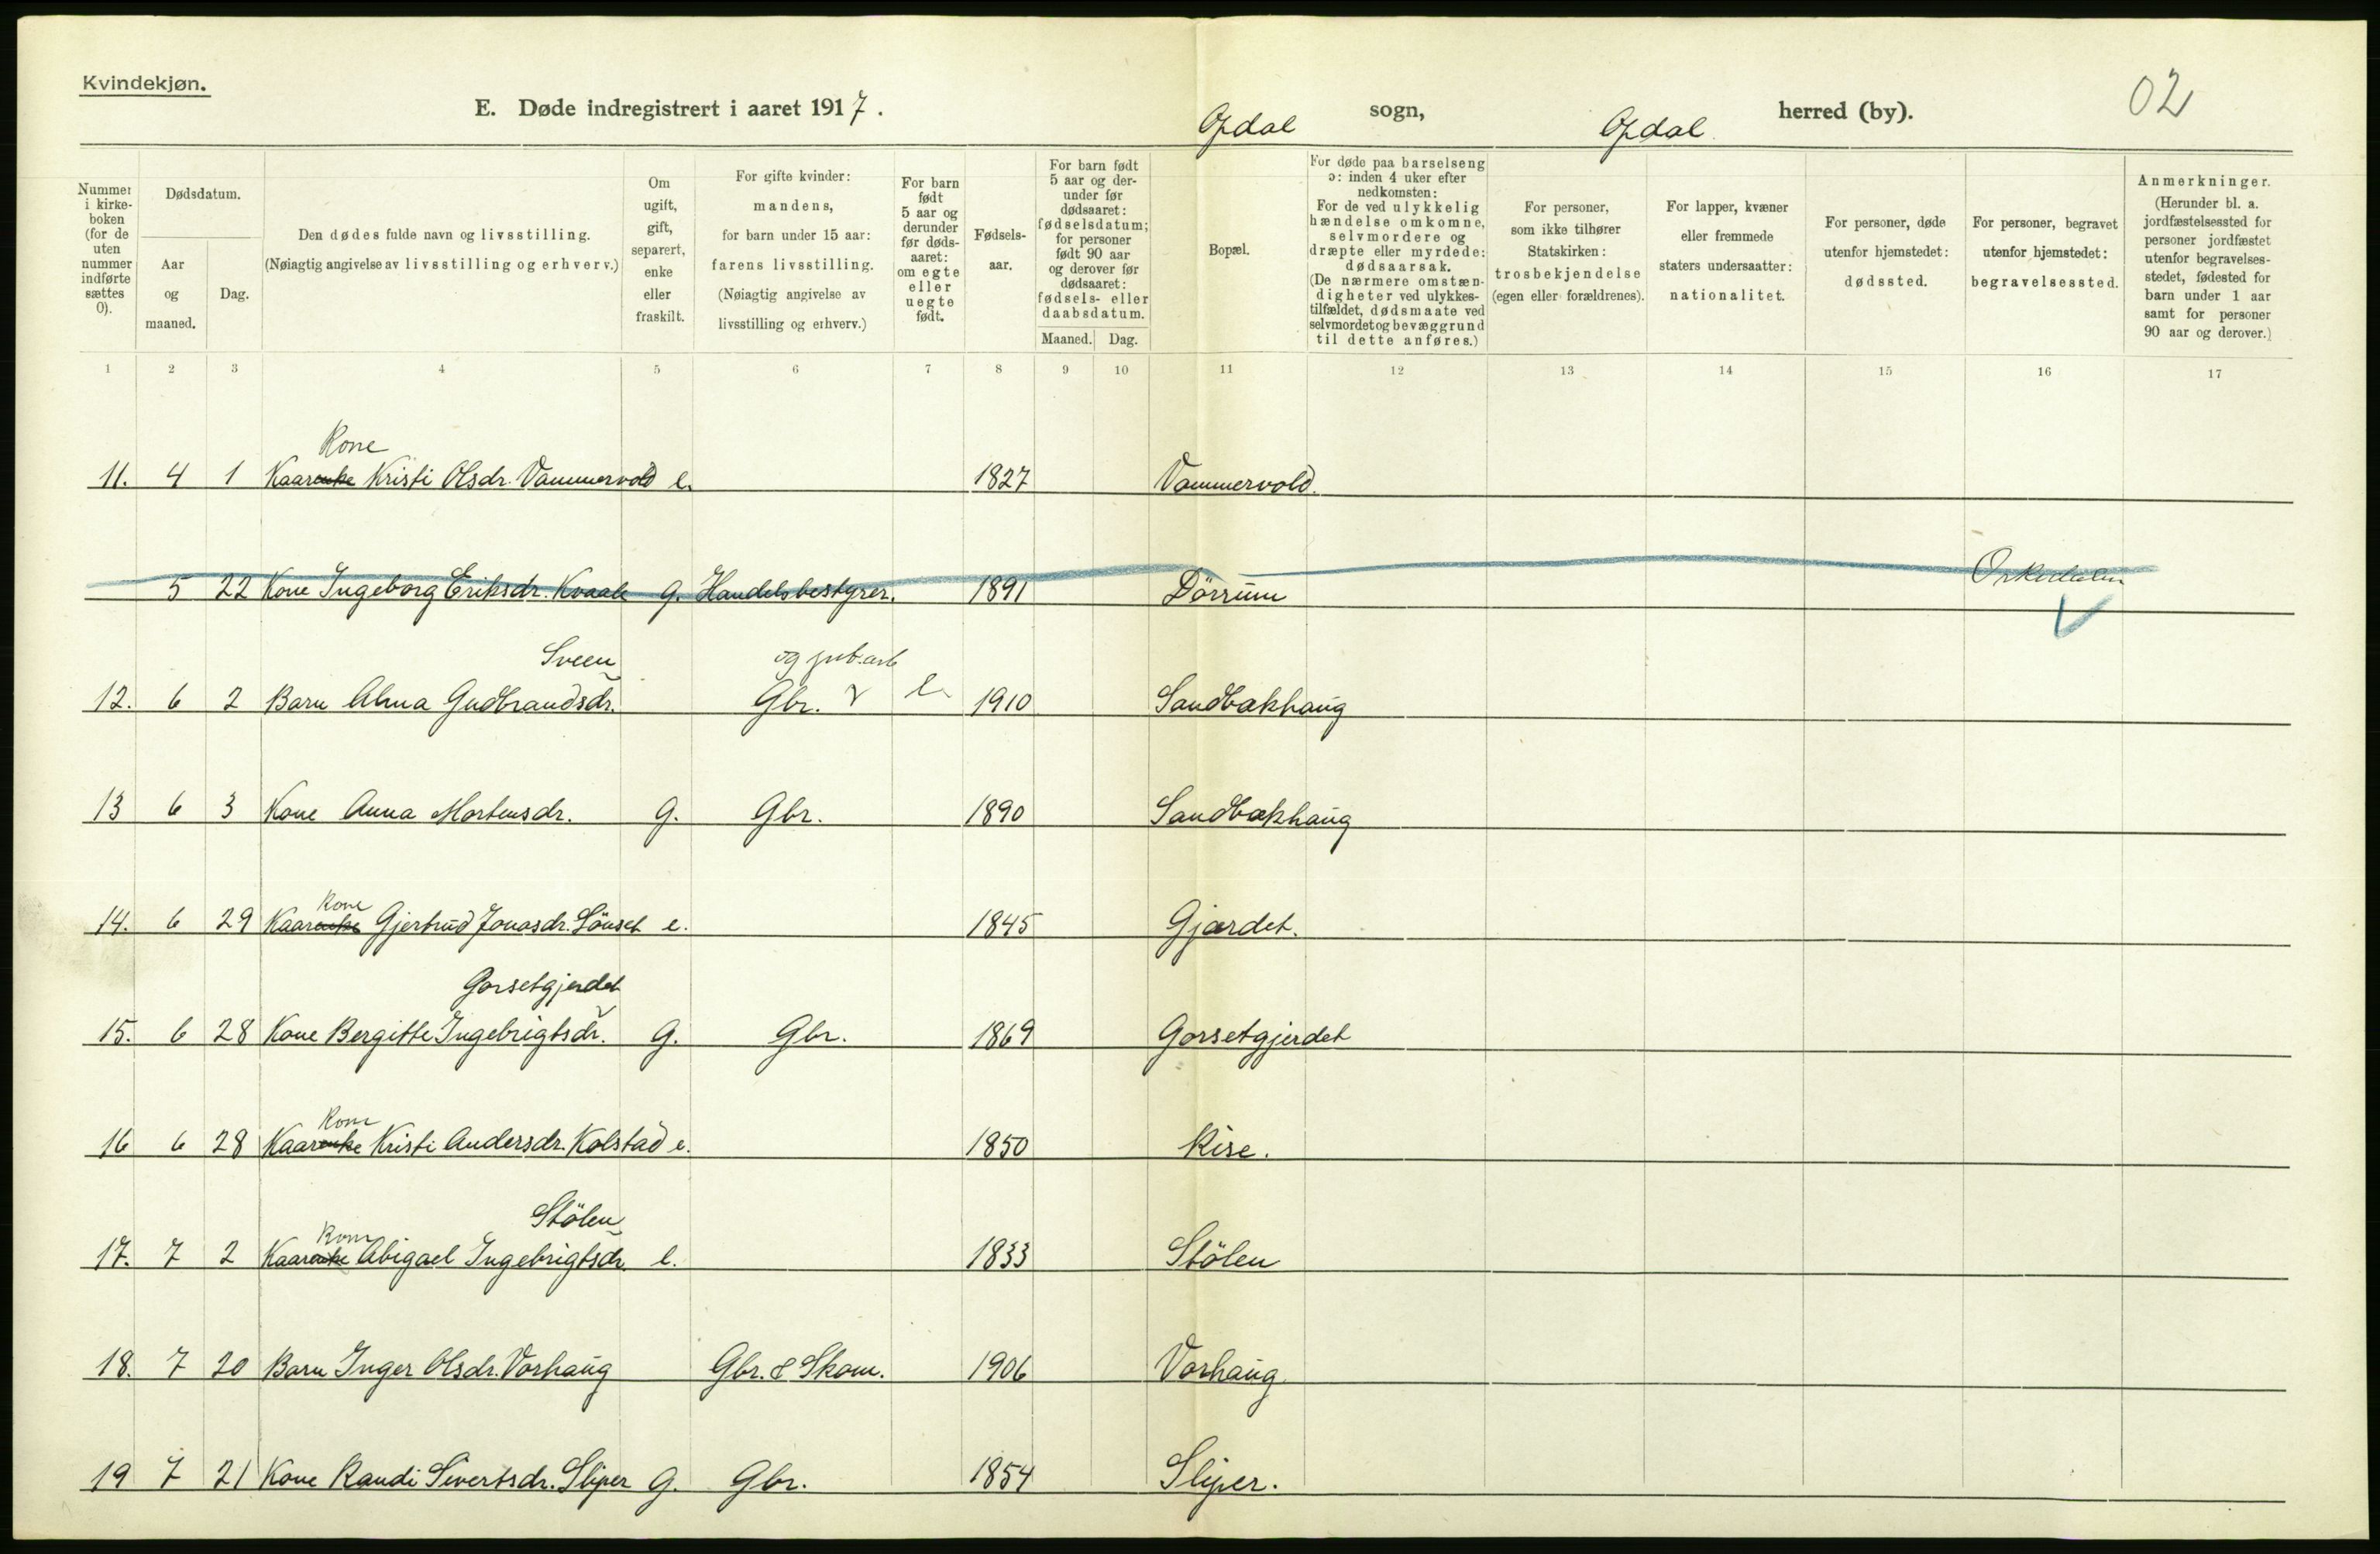 Kvindekjøn.
02
E. Døde indregistrert i aaret 1917.
Opdal sogn, Opdal herred (by).
Nummer i kirke-boken (for de uten nummer indførte sættes 0).
Dødsdatum.
Aar og maaned.
Dag.
Den dødes fulde navn og livsstilling.
(Nøiagtig angivelse av livsstilling og erhverv.)
Om ugift, gift, separert, enke eller fraskilt.
For gifte kvinder:
mandens,
for barn under 15 aar:
farens livsstilling.
(Nøiagtig angivelse av
livsstilling og erhverv.)
For barn født 5 aar og derunder før døds-aaret: om egte eller uegte født.
Fødsels-aar.
For barn født 5 aar og der-under før dødsaaret: fødselsdatum; for personer født 90 aar og derover før dødsaaret: fødsels- eller daabsdatum.
Maaned. Dag.
Bopæl.
For døde paa barselseng
ɔ: inden 4 uker efter
nedkomsten:
For de ved ulykkelig
hændelse omkomne,
selvmordere og
dræpte eller myrdede:
dødsaarsak.
(De nærmere omstæn-
digheter ved ulykkes-
tilfældet, dødsmaate ved
selvmordet og bevæggrund
til dette anføres.)
For personer,
som ikke tilhører
Statskirken:
trosbekjendelse
(egen eller forældrenes).
For lapper, kvæner
eller fremmede
staters undersaatter:
nationalitet.
For personer, døde
utenfor hjemstedet:
dødssted.
For personer, begravet
utenfor hjemstedet:
begravelsessted.
Anmerkninger.
(Herunder bl. a.
jordfæstelsessted for
personer jordfæstet
utenfor begravelses-
stedet, fødested for
barn under 1 aar
samt for personer
90 aar og derover.)
1 2 3 4 5 6 7 8 9 10 11 12 13 14 15 16 17
Kone
11. 4 1 Kaarenke Kristi Olsdr. Vammervold e. 1827 Vammervold.
5 22 Kone Ingeborg Eriksdr. Kvaale g. Handelsbestyrer. 1891 Dörrum Orkedalen
Sveen og
12. 6 2 Barn Alma Gudbrandsdr. Gbr. e 1910 Sandbakhaug
13 6 3 Kone Anna Mortensdr. g. Gbr. 1890 Sandbakhaug
Kone
14. 6 29 Kaarenke Gjertrud Jonasdr. Lönset e. 1845 Gjærdet.
Gorsetgjerdet
15. 6 28 Kone Bergitte Ingebrigtsdr. g. Gbr. 1869 Gorsetgjerdet
Kone
16 6 28 Kaarenke Kristi Andersdr. Kolstad e. 1850 Rise.
Stölen
Kone
17. 7 2 Kaarenke Abigael Ingebrigtsdr. e. 1833 Stölen
18. 7 20 Barn Inger Olsdr. Vorhaug Gbr. & Skom. 1906 Vorhaug
19 7 21 Kone Randi Sivertsdr. Sliper g. Gbr. 1854 Sliper.